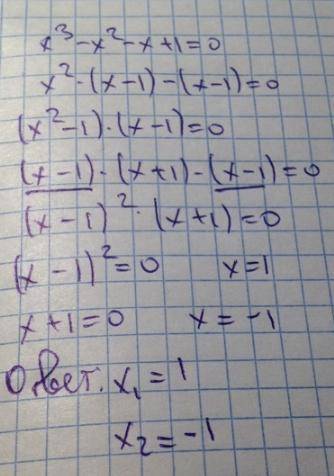 x³-x²-x+1=0
x²·(x-1)-(x-1)=0
(x²-1)·(x-1)=0
(x-1)·(x+1)-(x-1)=0
(x-1)²·(x+1)=0
(x-1)²=0 x=1
x+1=0 x=-1
Ответ. x₁=1
x₂=-1